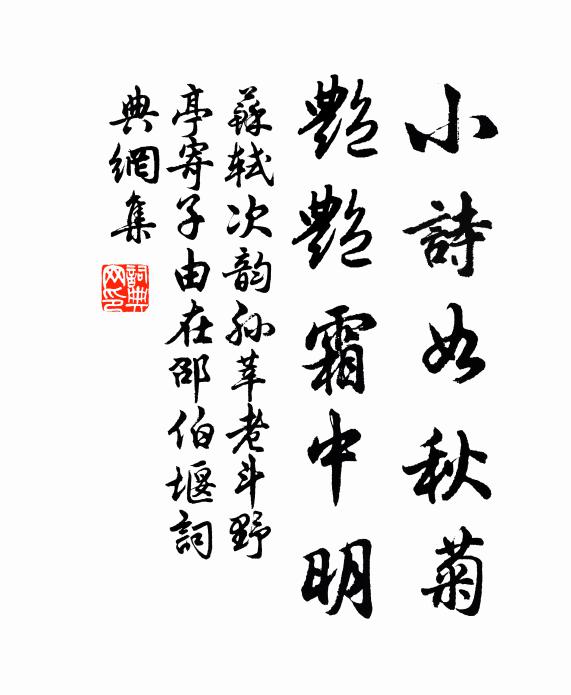 小詩如秋菊
艷艷霜中明
蘇軾次韵孙莘老斗野
亭寄子由在邵伯堰詞
典網集
詞典网印